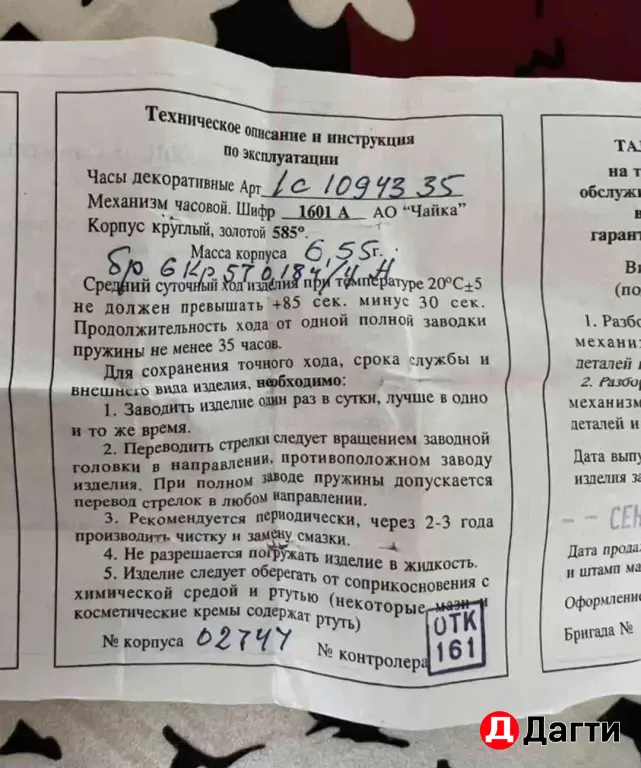 Техническое описание и инструкция
по эксплуатации
Часы декоративные Арт 1с1094335
Механизм часовой. Шифр 1601 А АО "Чайка"
Корпус круглый, золотой 585°.
Масса корпуса 6,55г.
бр 6 Кр 57 0,184/4 А
Средний суточный ход изделия при температуре 20°С±5
не должен превышать +85 сек. минус 30 сек.
Продолжительность хода от одной полной заводки
пружины не менее 35 часов.
Для сохранения точного хода, срока службы и
внешнего вида изделия, необходимо:
1. Заводить изделие один раз в сутки, лучше в одно
и то же время.
2. Переводить стрелки следует вращением заводной
головки в направлении, противоположном заводу
изделия. При полном заводе пружины допускается
перевод стрелок в любом направлении.
3. Рекомендуется периодически, через 2-3 года
производить чистку и замену смазки.
4. Не разрешается погружать изделие в жидкость.
5. Изделие следует оберегать от соприкосновения с
химической средой и ртутью (некоторые мази и
косметические кремы содержат ртуть)
№ корпуса 02747 № контролера
ОТК
161
ТА
на т
обслужи
гарант
В
(по
1. Разбо
механиз
деталей
2. Разбор
механизм
деталей и
Дата выпу
изделия за
-- СЕН
Дата прода
и штамп ма
Оформление
Бригада №
Д Дагти